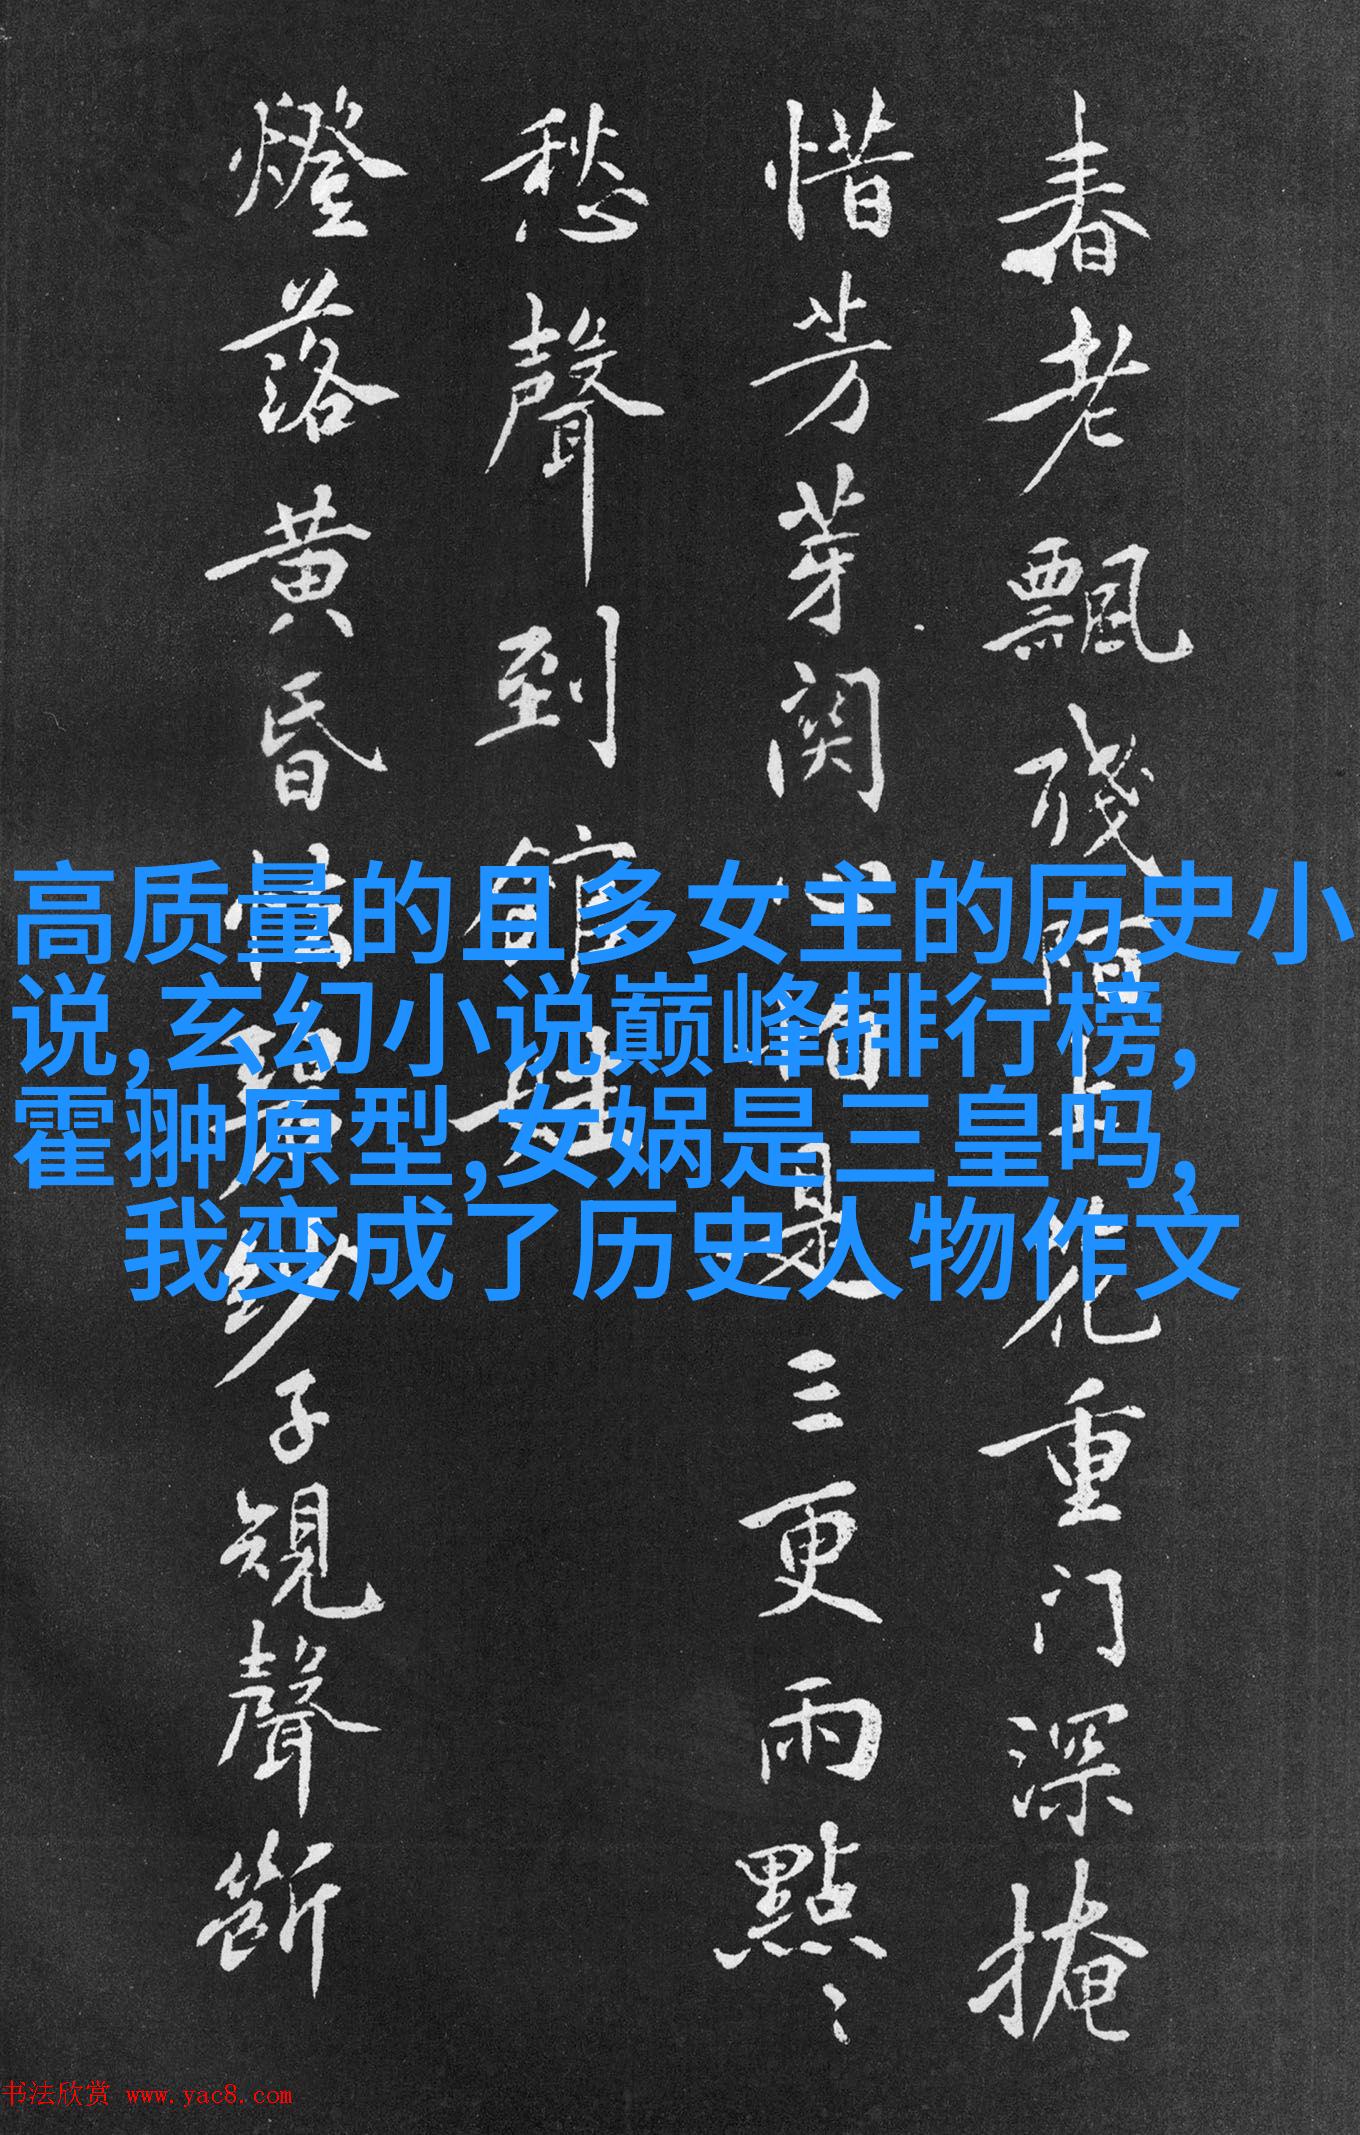 春老飄殘陌上花重门深掩
惜芳芽関心是三更雨點〻
愁聲到館娃
燈落黄昏紗子規聲斷
高质量的且多女主的历史小
说,玄幻小说巅峰排行榜,
霍翀原型,女娲是三皇吗,
我变成了历史人物作文
书法欣赏 www.yac8.com